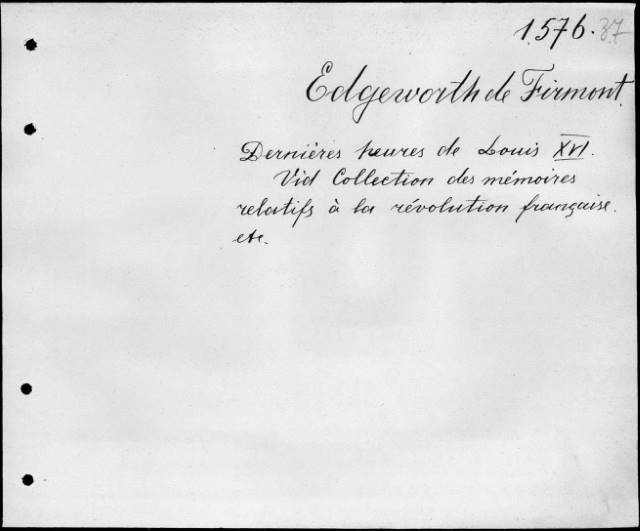 1576. 37
Edgeworth de Firmont.
Dernières heures de Louis XVI.
Vid Collection des mémoires
relatifs à la révolution française.
etc.